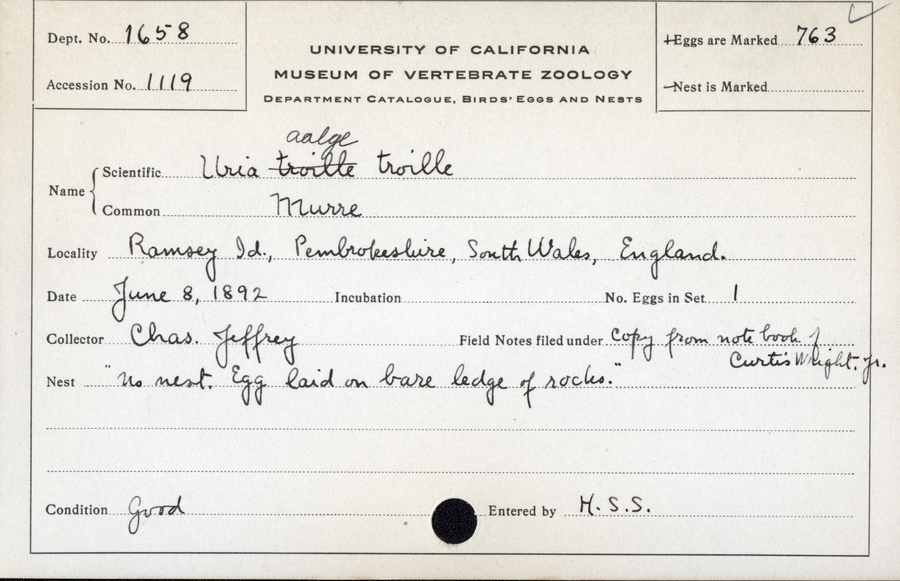 Dept. No. 1658
Accession No. 1119
UNIVERSITY OF CALIFORNIA
MUSEUM OF VERTEBRATE ZOOLOGY
DEPARTMENT CATALOGUE, BIRDS' EGGS AND NESTS
Eggs are Marked 763
Nest is Marked
aalge
Name Scientific Uria troille troille
Common Murre
Locality Ramsey Id., Pembrokeshire, South Wales, England.
Date June 8, 1892 Incubation No. Eggs in Set 1
Collector Chas. Jeffrey Field Notes filed under Copy from note book of
Curtis Wright. Jr.
Nest "No nest. Egg laid on bare ledge of rocks."
Condition Good Entered by H.S.S.